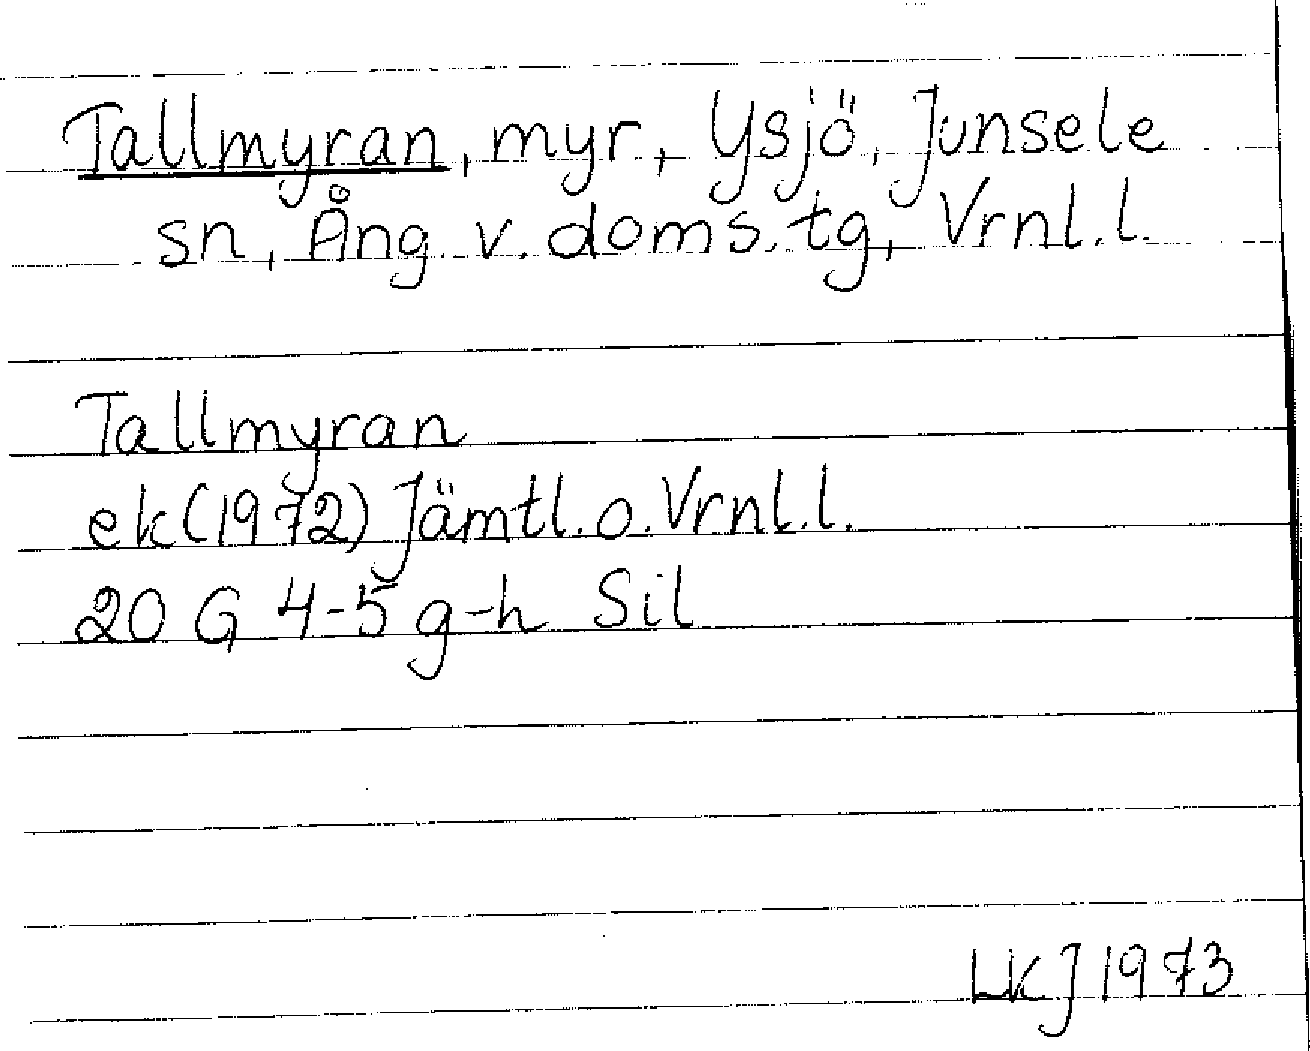 Tallmyran, myr, Ysjö, Junsele
sn, Ång. v. doms. tg, Vrnl. l.
Tallmyran
ek (1972) Jämtl. o. Vrnl. l.
20 G 4-5 g-h Sil
LKJ 1973